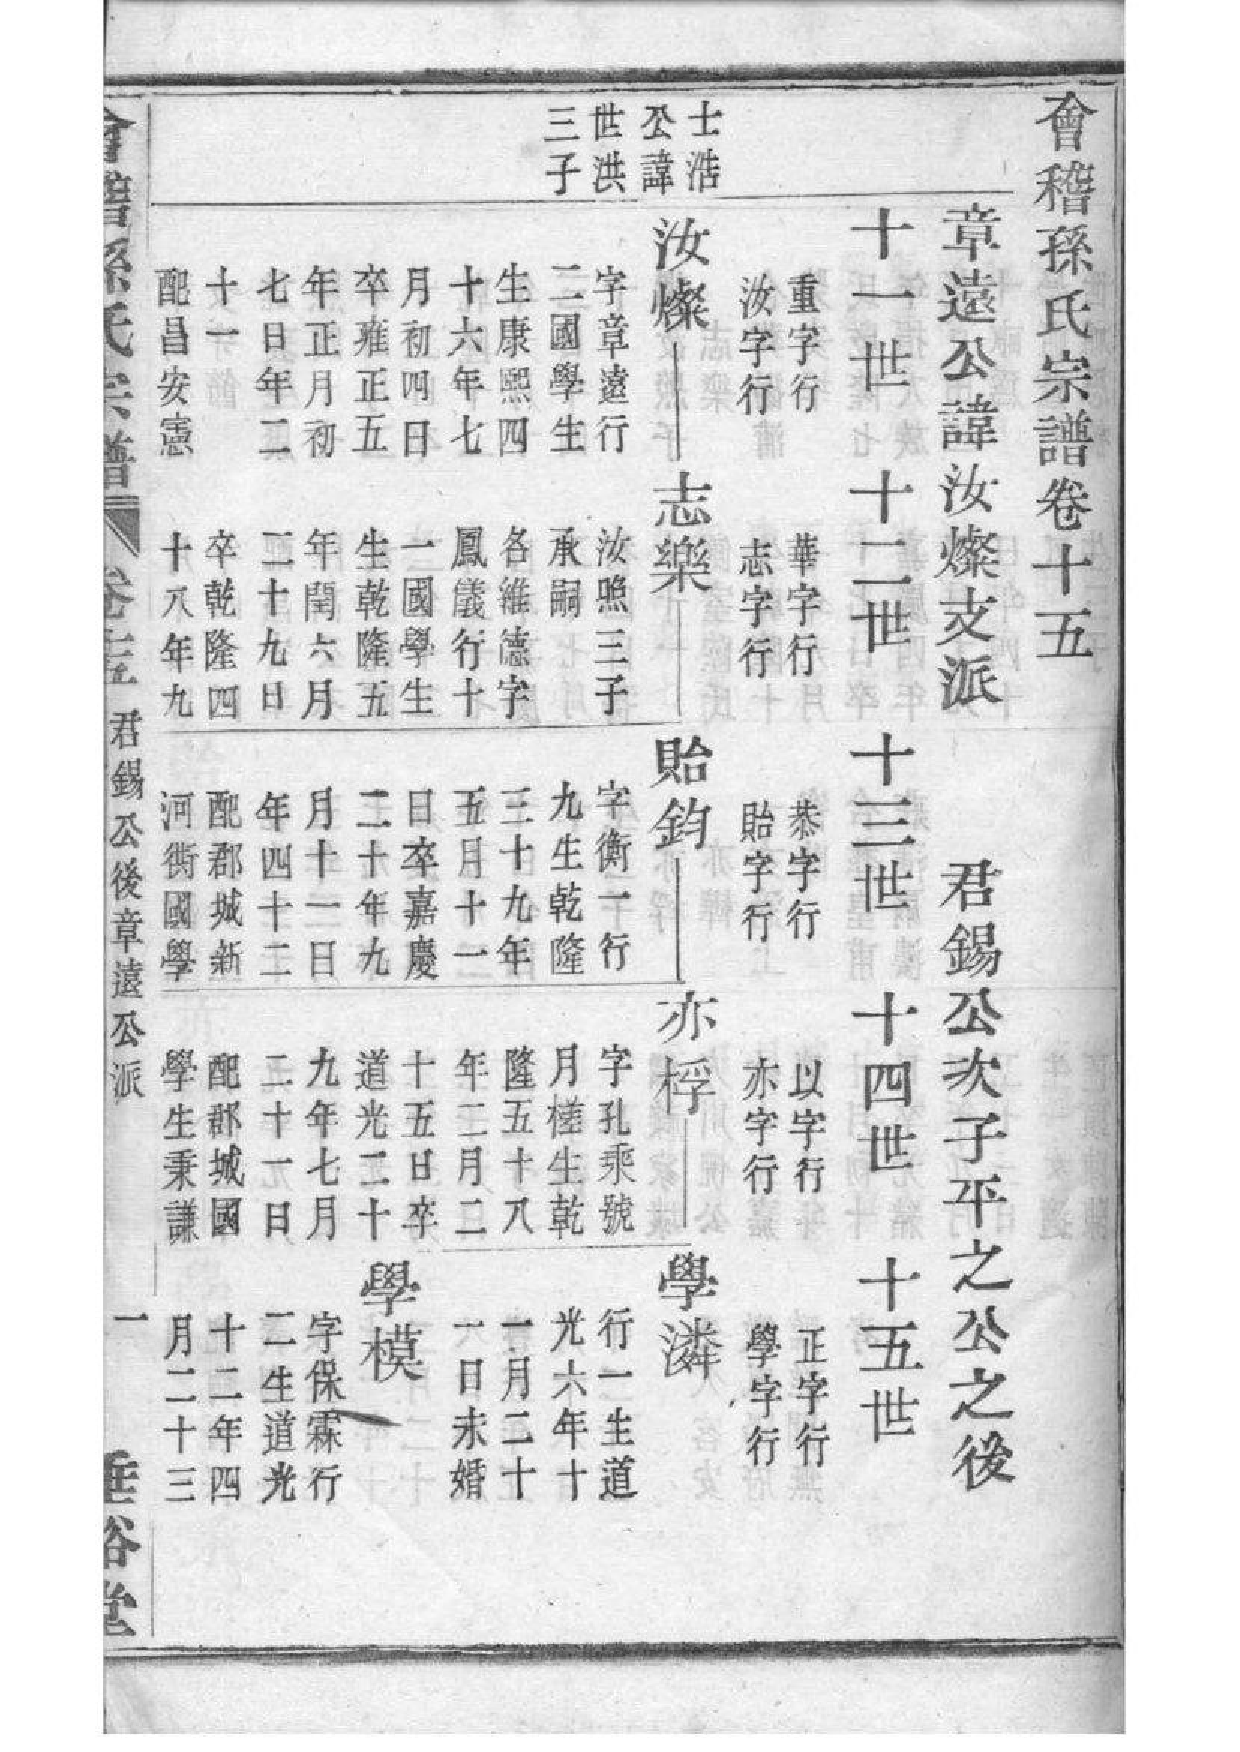 會稽孫氏宗譜卷十五
章遠公諱汝燦支派
君錫公次子平之公之後
十一世
十二世
十三世
十四世
十五世
重字行
汝字行
華字行
志字行
恭字行
貽字行
以字行
亦字行
正字行
學字行
士浩
公諱
世洪
三子
汝燦
字章遠行
二國學生
生康熙四
十六年七
月初四日
卒雍正五
年正月初
七日年二
十一
配昌安憲
志樂
汝煦三子
承嗣
名維德字
鳳儀行十
一國學生
生乾隆五
年閏六月
二十九日
卒乾隆四
十八年九
貽鈞
字衡一行
九生乾隆
三十九年
五月十一
日卒嘉慶
二十年九
月十一日
年四十二
配郡城新
河衖國學
亦桴
字孔乘號
月槎生乾
隆五十八
年二月二
十五日卒
道光二十
九年七月
二十一日
配郡城國
學生秉謙
學潾
行一生道
光六年十
一月二十
六日未婚
學模
字保霖行
二生道光
十二年四
月二十三
會稽孫氏宗譜
卷十五
君錫公後章遠公派
一
垂裕堂